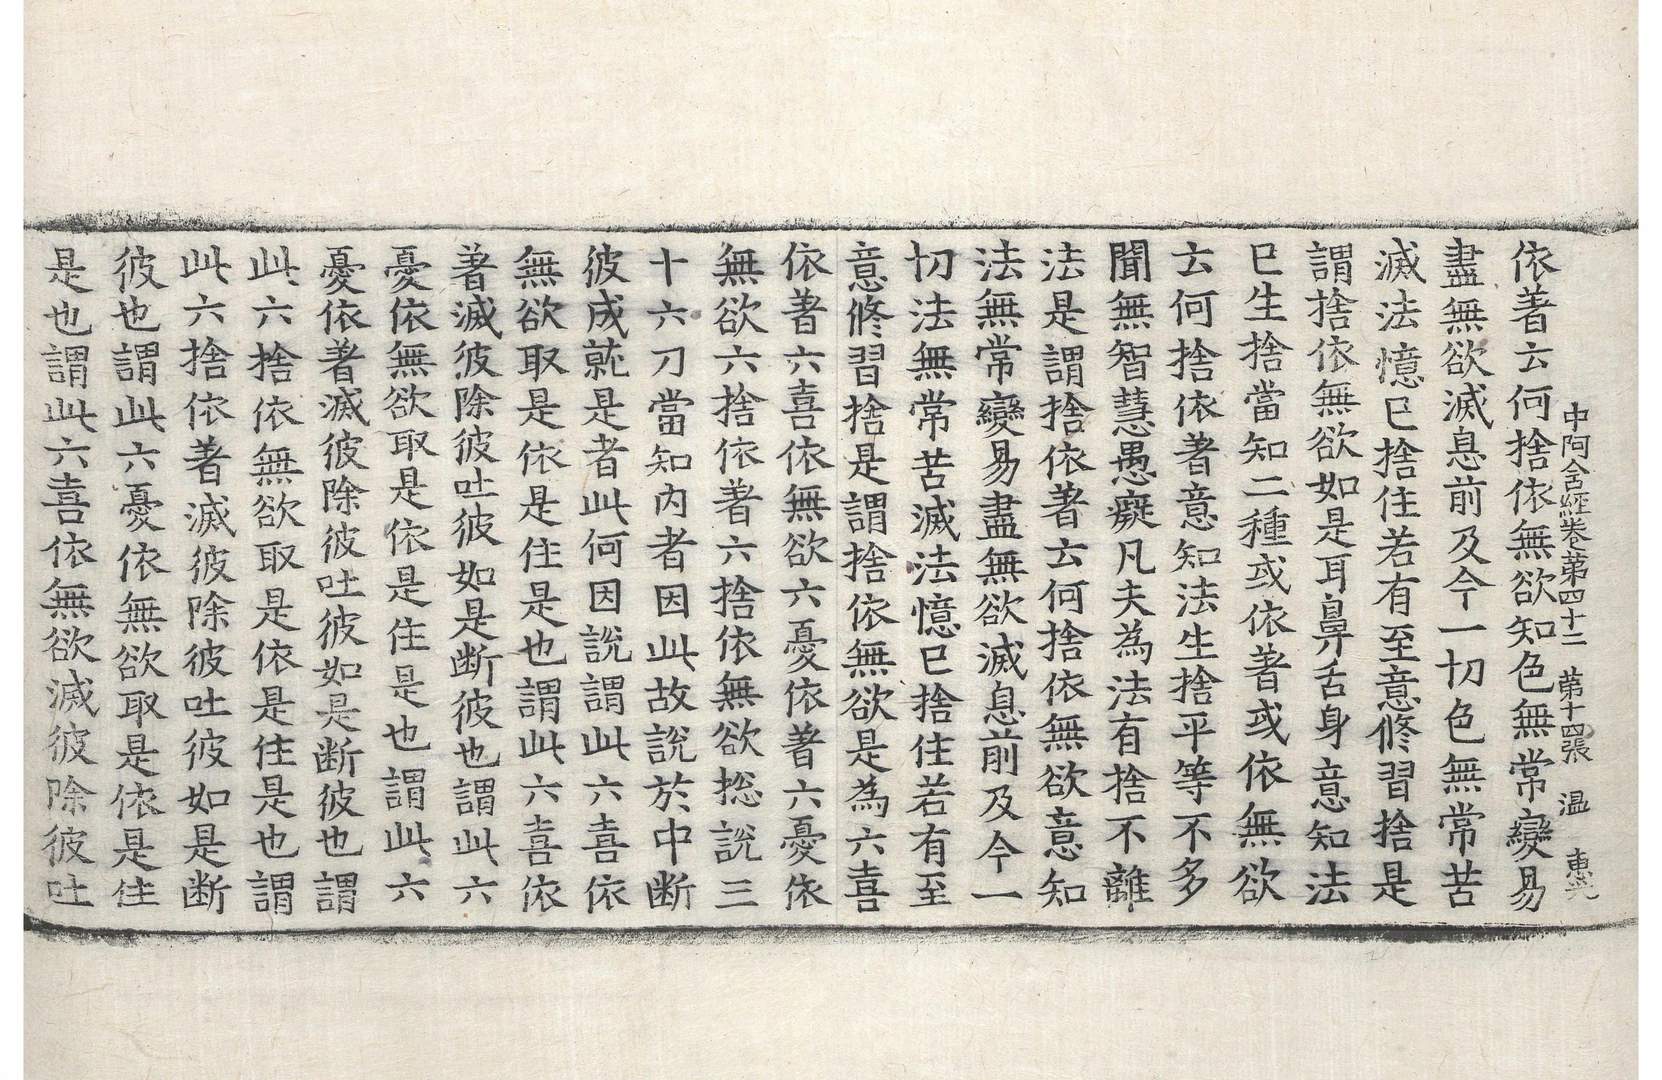 中阿含經卷第四十二 第十四張 温
依著云何捨依無欲知色無常變易
盡無欲滅息前及今一切色無常苦
滅法憶已捨住若有至意修習捨是
謂捨依無欲如是耳鼻舌身意知法
已生捨當知二種或依著或依無欲
云何捨依著意知法生捨平等不多
聞無智慧愚癡凡夫為法有捨不離
法是謂捨依著云何捨依無欲意知
法無常變易盡無欲滅息前及今一
切法無常苦滅法憶已捨住若有至
意修習捨是謂捨依無欲是為六喜
依著六喜依無欲六憂依著六憂依
無欲六捨依著六捨依無欲捴說三
十六刀當知內者因此故說於中断
彼成就是者此何因說謂此六喜依
無欲取是依是住是也謂此六喜依
著滅彼除彼吐彼如是断彼也謂此六
憂依無欲取是依是住是也謂此六
憂依著滅彼除彼吐彼如是断彼也謂
此六捨依無欲取是依是住是也謂
此六捨依著滅彼除彼吐彼如是断
彼也謂此六憂依無欲取是依是住
是也謂此六喜依無欲滅彼除彼吐